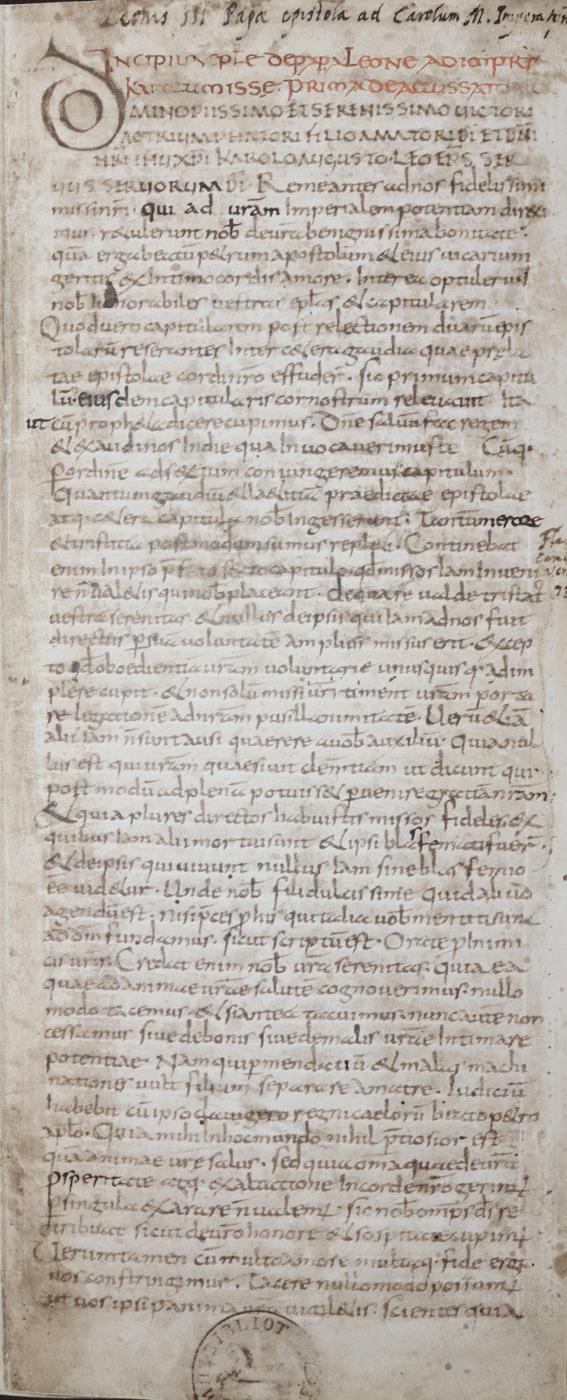 Leonis III Papæ epistola ad Carolum M. Imperat
INCIPIUNT EPLE DE PAPA LEONE AD
KAROLUM MISSE. PRIMA DE
DOMINO PIISSIMO ET SERENISSIMO VICTORI
AC TRIUMPHATORI FILIO AMATORI DI ET DNI
NRI IHU XPI KAROLO AUGUSTO. LEO EPS SER
UUS SERUORUM DI. Remeantes ad nos fidelissimi
missi nri. qui ad uram Imperialem potentiam direxi
mus. retulerunt nob de ura benignissima bonitate.
qua erga beatu petrum apostolum et eius uicarium
geritis ex Intimo cordis amore. Interea optulerunt
nob honorabiles uestras eplas et capitularem
Quod uero capitularem post relectionem duaru epis
tolaru reserantes Inter cetera gaudia quae
tae epistolae cordi nro effuder. sic primum capitu
lu. eiusdem capitularis cor nostrum releuauit Ita
ut cu propheta dicere cupimus. Dne saluu fac regem
et exaudi nos In die qua Inuocauerimus te Cuq.
p ordine ad sextum coniungeremus capitulum.
Quantum gaudiu et laetitia praedictae epistolae
atq. cetera capitula nob Ingesserunt. Tantum merore
et tristitia postmodum sumus repleti. Continebat
enim In ipso sexto capitulo. qd missos Iam Inueni
re n ualetis qui nob placeant. de qua re ualde tristat
uestra serenitas et nullus de ipsis qui Iam ad nos fuit
directus p sua uoluntate amplius missus erit. excep
to qd oboedientia uram uoluntarie unusquisq. adim
plere cupit. et non solu missi uri timent uram porta
re legatione ad nram pusillanimitate. Ueru etia
alii Iam n sunt ausi quaerere a uob auxiliu. Quia nul
lus est qui uram quaesiuit clementiam ut dicunt qui
postmodu ad plena potuisset peruenire gratiam nram.
Et quia plures directos habuistis missos fideles ex
quibus Iam alii mortui sunt et ipsi blasfemati fuer.
et de ipsis qui uiuunt nullus Iam sine blasfemio
ee uidetur. Unde nob fili dulcissime Quid ab uo
agendu est. nisi pces p his qui talia uob mentiti sunt
ad dm fundamus. sicut scriptu est. Orate p Inimi
cis uris. Credat enim nob ura serenitas. Quia ea
quae ad animae urae salute cognouerimus. nullo
modo tacemus. et si antea tacuimus. nunc aute non
cessamus siue de bonis siue de malis urae Intimare
potentiae. Nam qui p mendaciu et malas machi
nationes uult filium separare a matre. Iudiciu
habebit cu ipso clauigero regni caeloru beato petro
aplo. Quia mihi In hoc mundo nihil ptiosior est
qua animae ure salus. sed quia omnia quae de ura
psperitate atq. exaltatione In corde nro gerimus
p singula exarare n ualem. sic nob omps ds re
tribuat sicut de uro honore et sospitate cupim
Uerum tamen cu multo amore multaq. fide erga
uos constringimur. Tacere nullomodo possum
ut uos ipsi p anima ura uigiletis. scientes quia
BIBLIOT